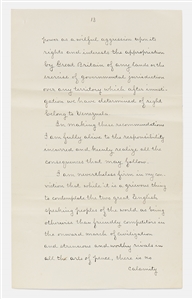 13
power as a wilful aggression upon its
rights and interests the appropriation
by Great Britain of any lands or the
exercise of governmental jurisdiction
over any territory which after investi-
gation we have determined of right
belong to Venezuela.
In making these recommendations
I am fully alive to the responsibility
incurred and keenly realize all the
consequences that may follow.
I am nevertheless firm in my con-
viction that while it is a grievous thing
to contemplate the two great English
speaking peoples of the world as being
otherwise than friendly competitors in
the onward march of civilization
and strenuous and worthy rivals in
all the arts of peace, there is no
calamity